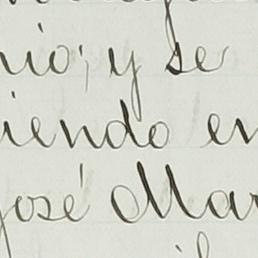 nio; y se
iendo en
José Mar